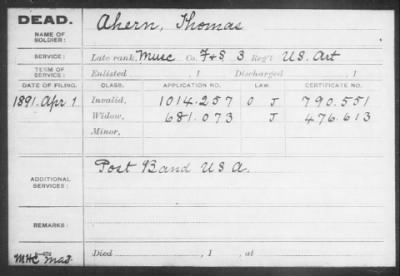 DEAD.
NAME OF SOLDIER:
Ahern, Thomas
SERVICE:
Late rank, Musc Co. F&S 3 Reg't U.S. Art
TERM OF SERVICE:
Enlisted , 1 Discharged , 1
DATE OF FILING. CLASS. APPLICATION NO. LAW CERTIFICATE NO.
1891. Apr. 1. Invalid, 1014.257 O J 790.551
Widow, 681.073 J 476.613
Minor,
ADDITIONAL SERVICES:
Post Band U S A.
REMARKS:
Died , 1 , at